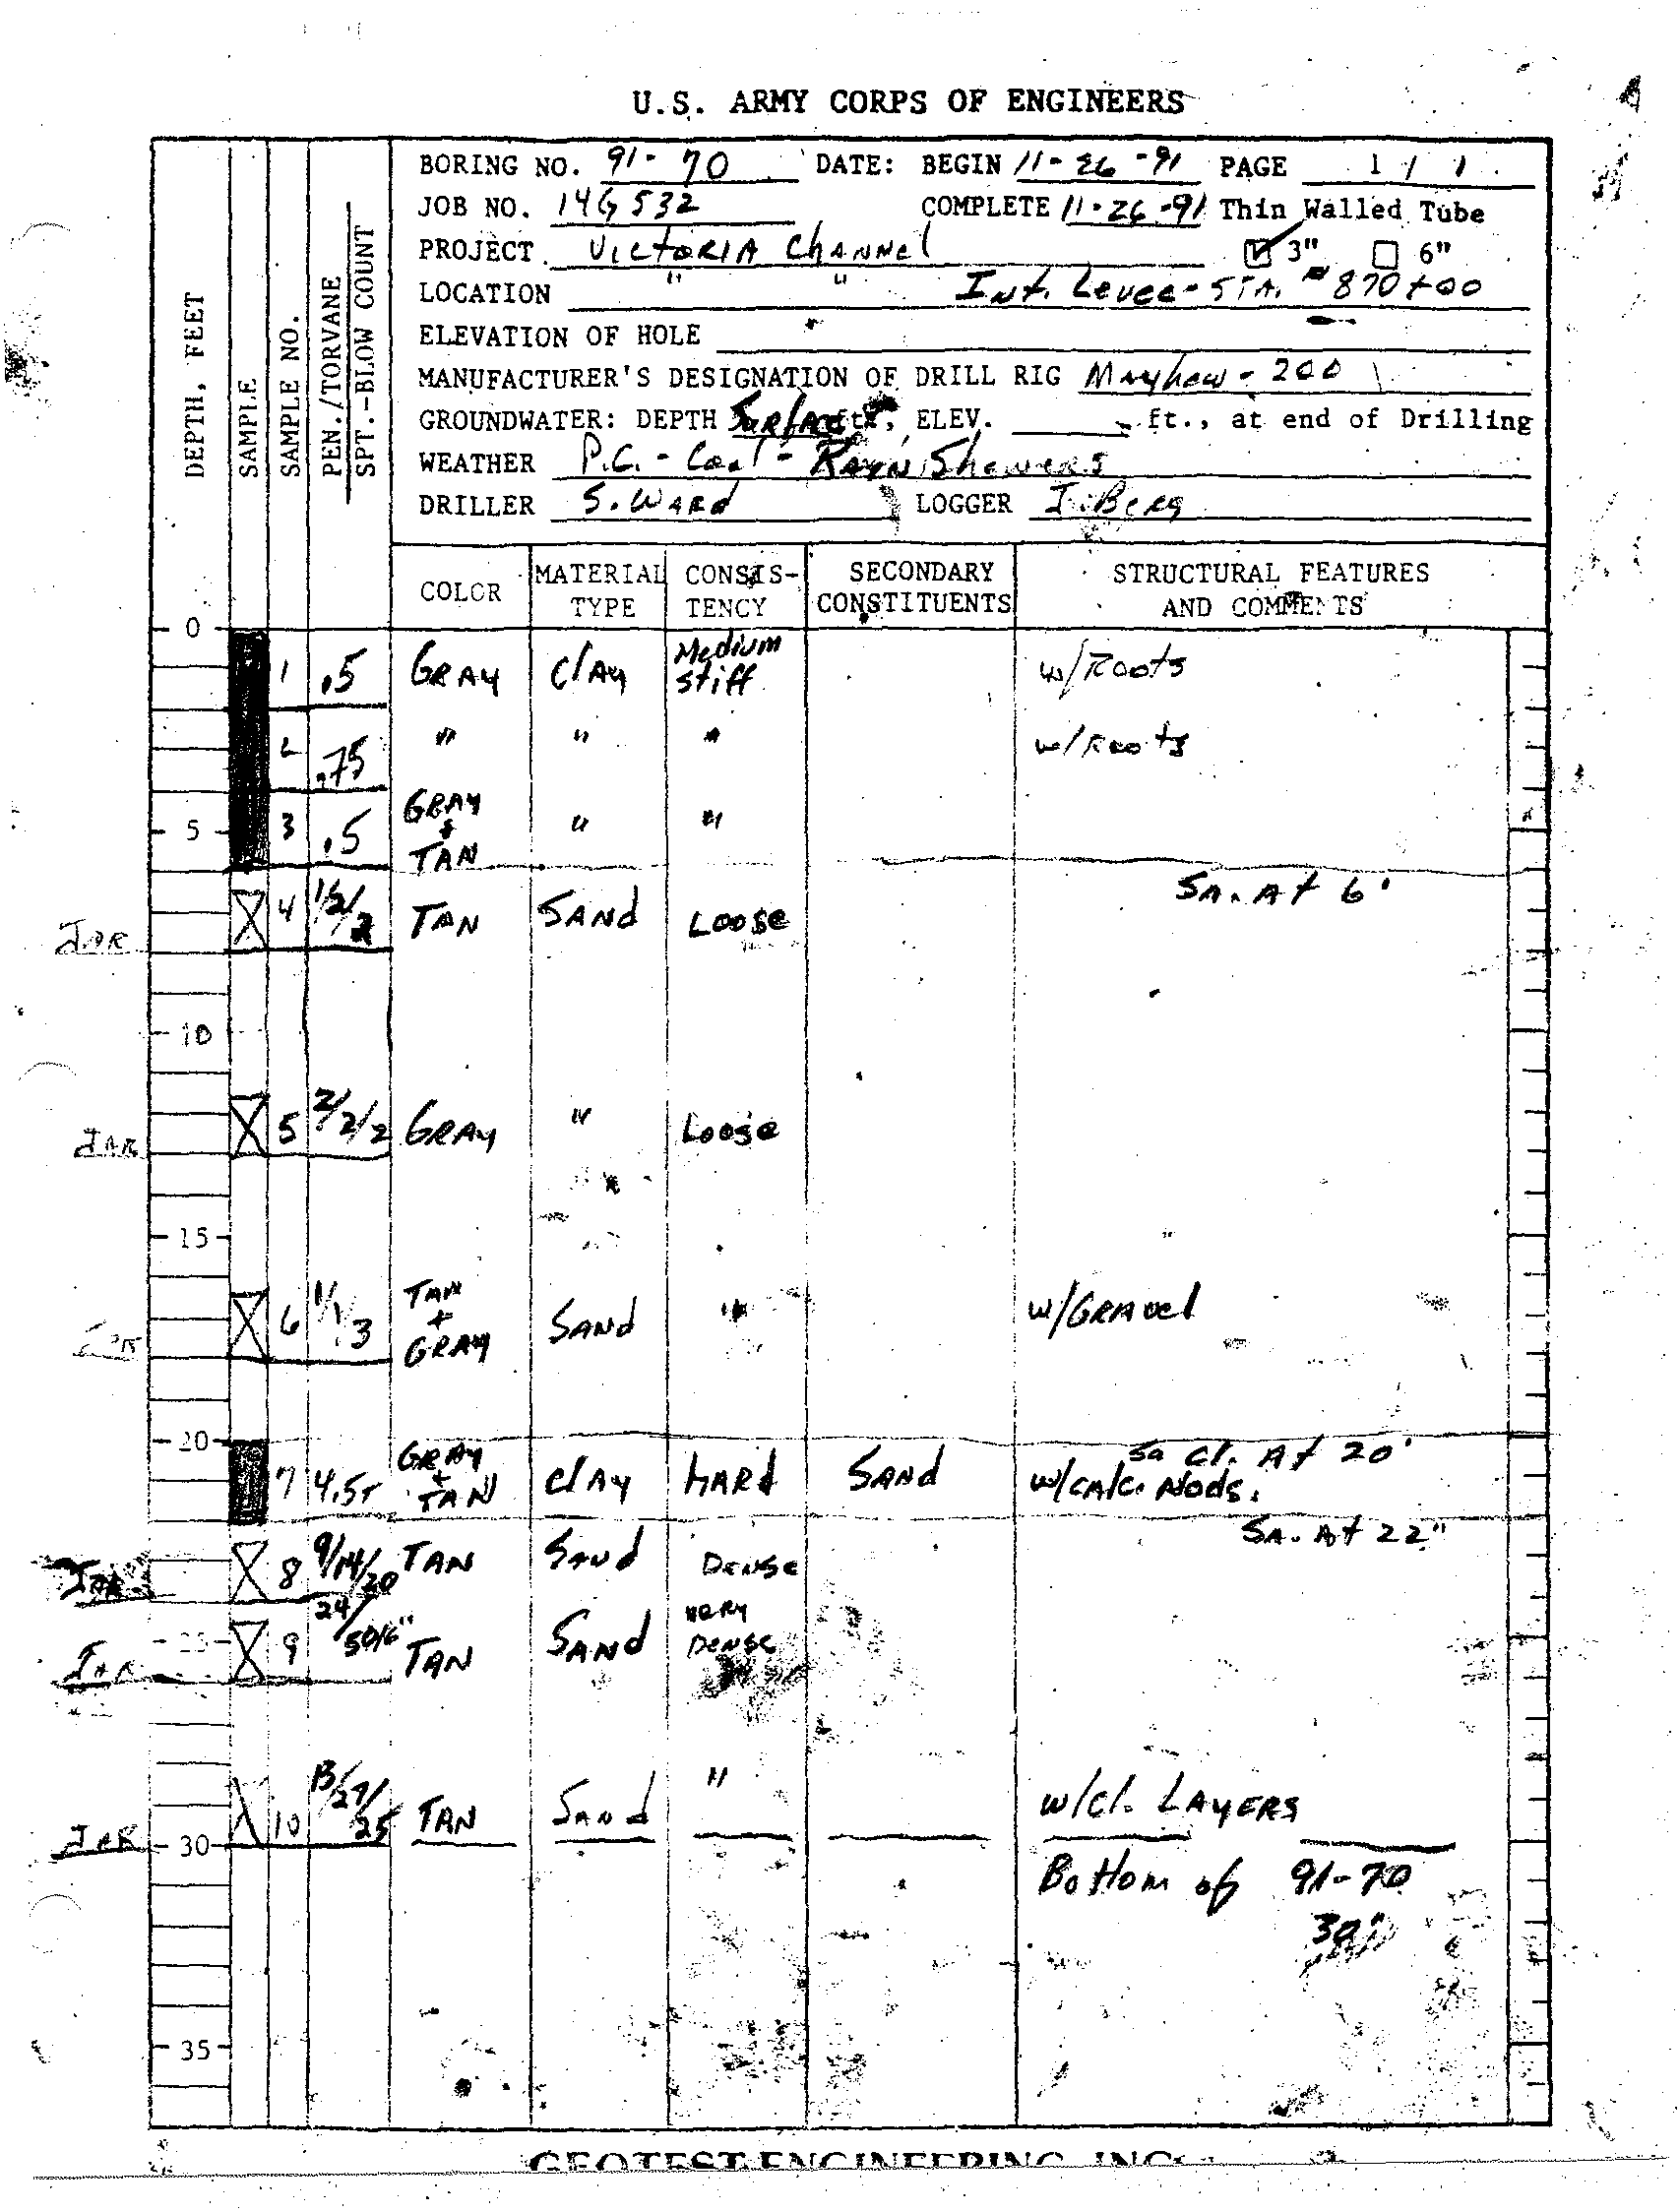 U.S. ARMY CORPS OF ENGINEERS
DEPTH, FEET
SAMPLE
SAMPLE NO.
PEN./TORVANE
SPT.-BLOW COUNT
BORING NO. 91-70 DATE: BEGIN 11-26-91 PAGE 1 / 1
JOB NO. 14G532 COMPLETE 11-26-91 Thin Walled Tube
PROJECT VICTORIA Channel 3" 6"
LOCATION " " Int. Levee-STA. # 870+00
ELEVATION OF HOLE
MANUFACTURER'S DESIGNATION OF DRILL RIG Mayhew-200
GROUNDWATER: DEPTH Surface ft., ELEV. ft., at end of Drilling
WEATHER P.C.-Cool-Rain Showers
DRILLER S. Ward LOGGER J. Berg
COLOR MATERIAL TYPE CONSIS-TENCY SECONDARY CONSTITUENTS STRUCTURAL FEATURES AND COMMENTS
0
1 .5 GRAY CLAY Medium stiff w/Roots
2 .75 " " " w/Roots
5 3 .5 GRAY & TAN " "
SA. At 6'
JAR 4 1/2/2 TAN SAND Loose
10
JAR 5 2/2/2 GRAY " Loose
15
6 1/1/3 TAN + GRAY SAND " w/GRAvel
20
Sa Cl. At 20'
7 4.5+ GRAY + TAN CLAY HARd SANd w/CALC. Nods.
SA. At 22"
JAR 8 9/14/20 TAN SAND Dense
JAR 25 9 24/50/6" TAN SAND Very Dense
JAR 30 10 13/27/25 TAN SAND " w/cl. LAYERS
Bottom of 91-70
30"
35
GEOTEST ENGINEERING, INC.